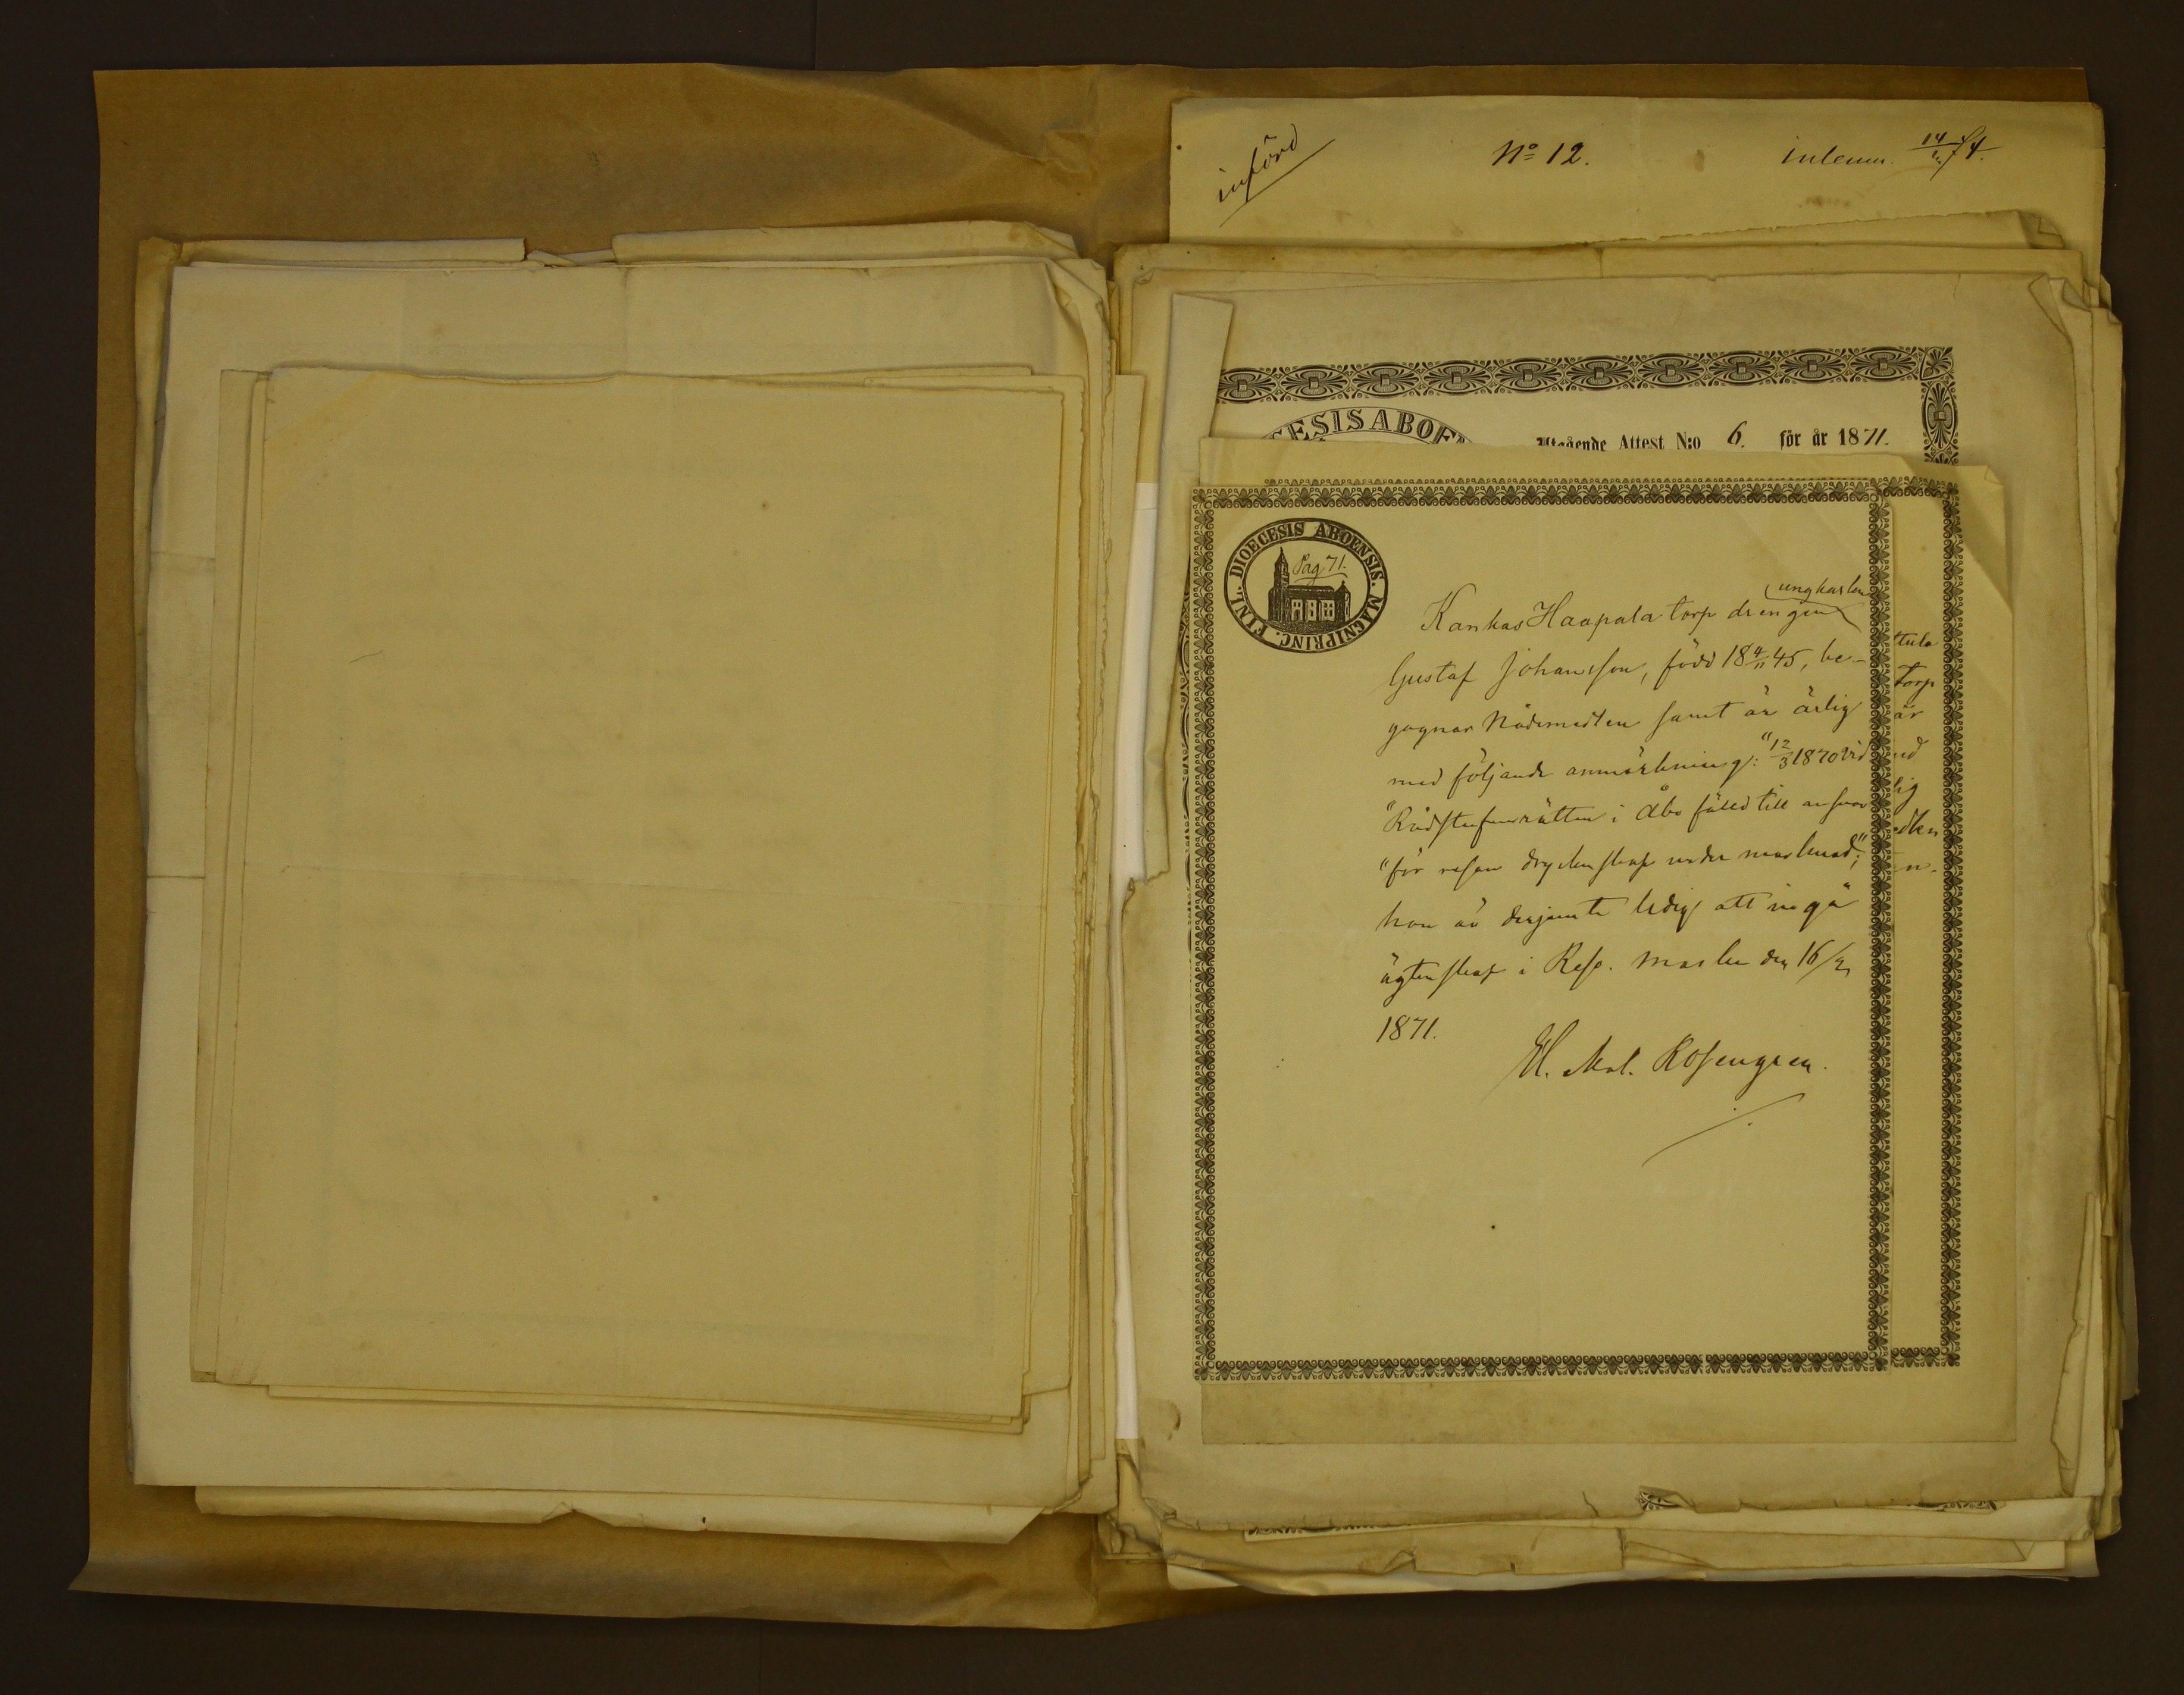 införd
No 12.
inlemn. 14/2 74.
ESIS ABOE
Utgående Attest N:o 6. för år 1871.
DIOECESIS ABOENSIS. MAGNIPRINC. FINL.
Pag 71.
ungkarlen
Kankas Haapala torp drengen
Gustaf Johansson, född 18 4/11 45, be-
gagnar Nådemedlen samt är ärlig
med följande anmärkning: "12/3 1870 vid
"Rådstufvurätten i Åbo fälld till ansvar
"för resan dryckenskap under marknad;"
han är derjemte ledig att ingå
ägtenskap i Resp. Masku den 16/2
1871.
Rosengren.
ttula
torp
är
ed
lig
edlen
n.